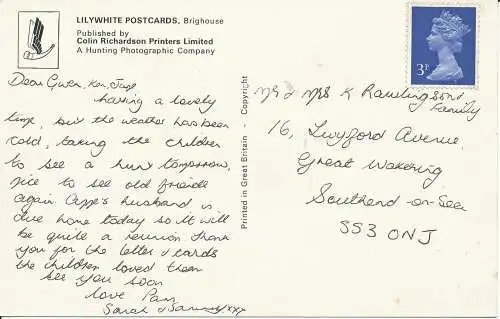 LILYWHITE POSTCARDS, Brighouse
Published by
Colin Richardson Printers Limited
A Hunting Photographic Company
Dear Gwen, Ken,
having a lovely
time, but the weather has been
cold, taking the children
to see a hunt tomorrow,
nice to see old friends
again. husband is
due home today so it will
be quite a reunion thank
you for the letter & cards
the children loved them
see you soon
love Pam
Sarah & xxx
Printed in Great Britain - Copyright
3P
Mr & Mrs K Rawlings and
Family
16, Twyford Avenue
Great Wakering
Southend-on-Sea
SS3 0NJ